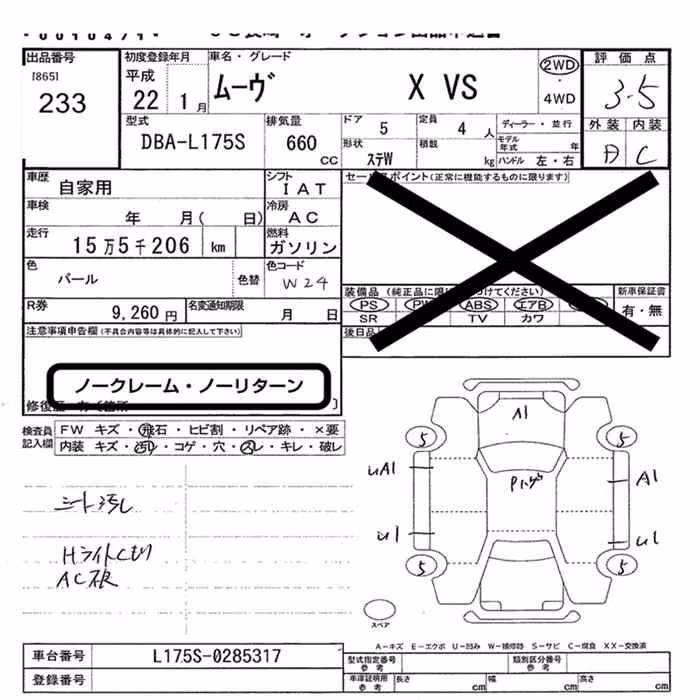 出品番号
[865]
233
初度登録年月
平成
22 1月
車名・グレード
ムーヴ X VS
2WD
・
4WD
評価点
3.5
外装 内装
C
型式
DBA-L175S
排気量
660
CC
ドア
5
定員
4 人
ディーラー・並行
モデル年式 年
形状
ステW
積数
kg
ハンドル 左・右
車歴
自家用
シフト
IAT
車検
年 月( 日)
冷房
AC
走行
15万5千206 km
燃料
ガソリン
色
パール
色替
色コード
W24
R券
9,260円
名変通知期限
月 日
セールスポイント(正常に機能するものに限ります)
装備品
PS PW ABS エアB
SR TV カワ
新車保証書
有・無
後日品
注意事項申告欄(不具合内容等は具体的に記入して下さい)
ノークレーム・ノーリターン
検査員記入欄
FW キズ・飛石・ヒビ割・リペア跡・×要
内装 キズ・汚れ・コゲ・穴・スレ・キレ・破レ
シート汚し
Hライトくもり
A1
5
5
UA1
A1
U1
U1
5
5
スペア
A-キズ E-エクボ U-凹み W-補修跡 S-サビ C-腐食 XX-交換済
車台番号
L175S-0285317
登録番号
型式指定番号
参考
類別区分番号
参考
車庫証明用
参考
長さ
cm
幅
cm
高さ
cm